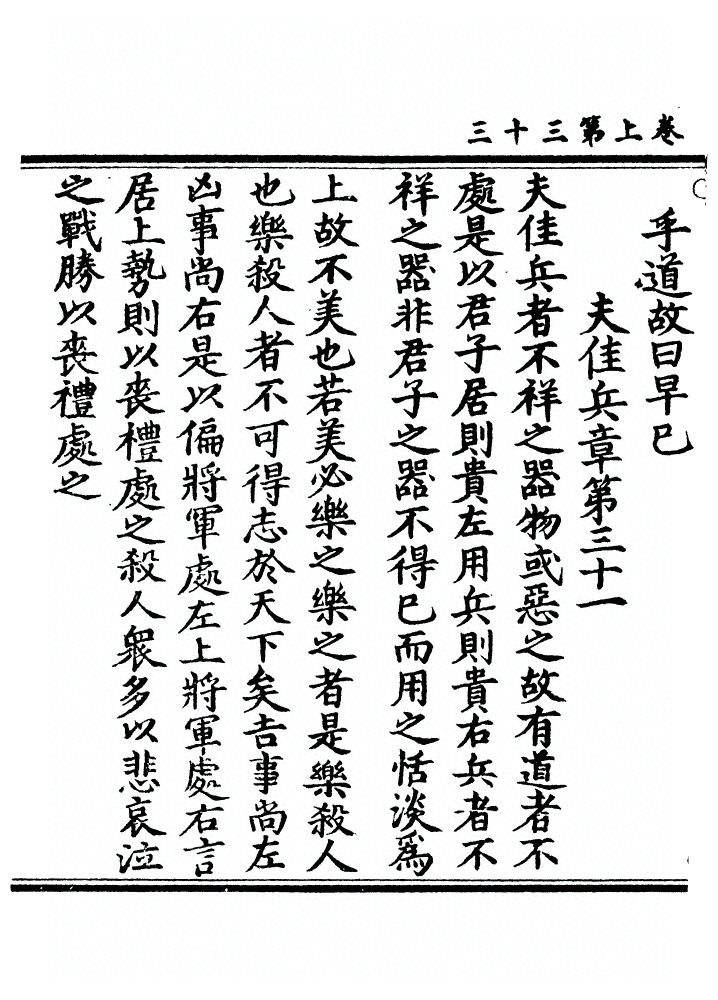 卷上第三十三
乎道故曰早已
夫佳兵章第三十一
夫佳兵者不祥之器物或惡之故有道者不
處是以君子居則貴左用兵則貴右兵者不
祥之器非君子之器不得已而用之恬淡爲
上故不美也若美必樂之樂之者是樂殺人
也樂殺人者不可得志於天下矣吉事尚左
凶事尚右是以偏將軍處左上將軍處右言
居上勢則以喪禮處之殺人衆多以悲哀泣
之戰勝以喪禮處之